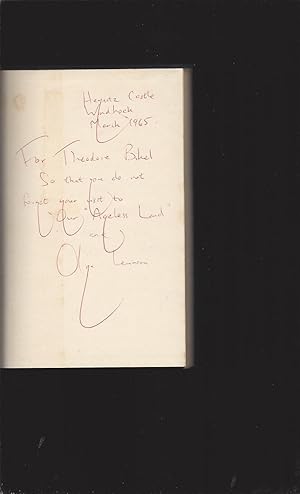 Heynitz Castle
Windhoek
March 1965.
For Theodore Bikel
So that you do not
forget your visit to
"Our "Ageless Land"
and
Olga Levinson